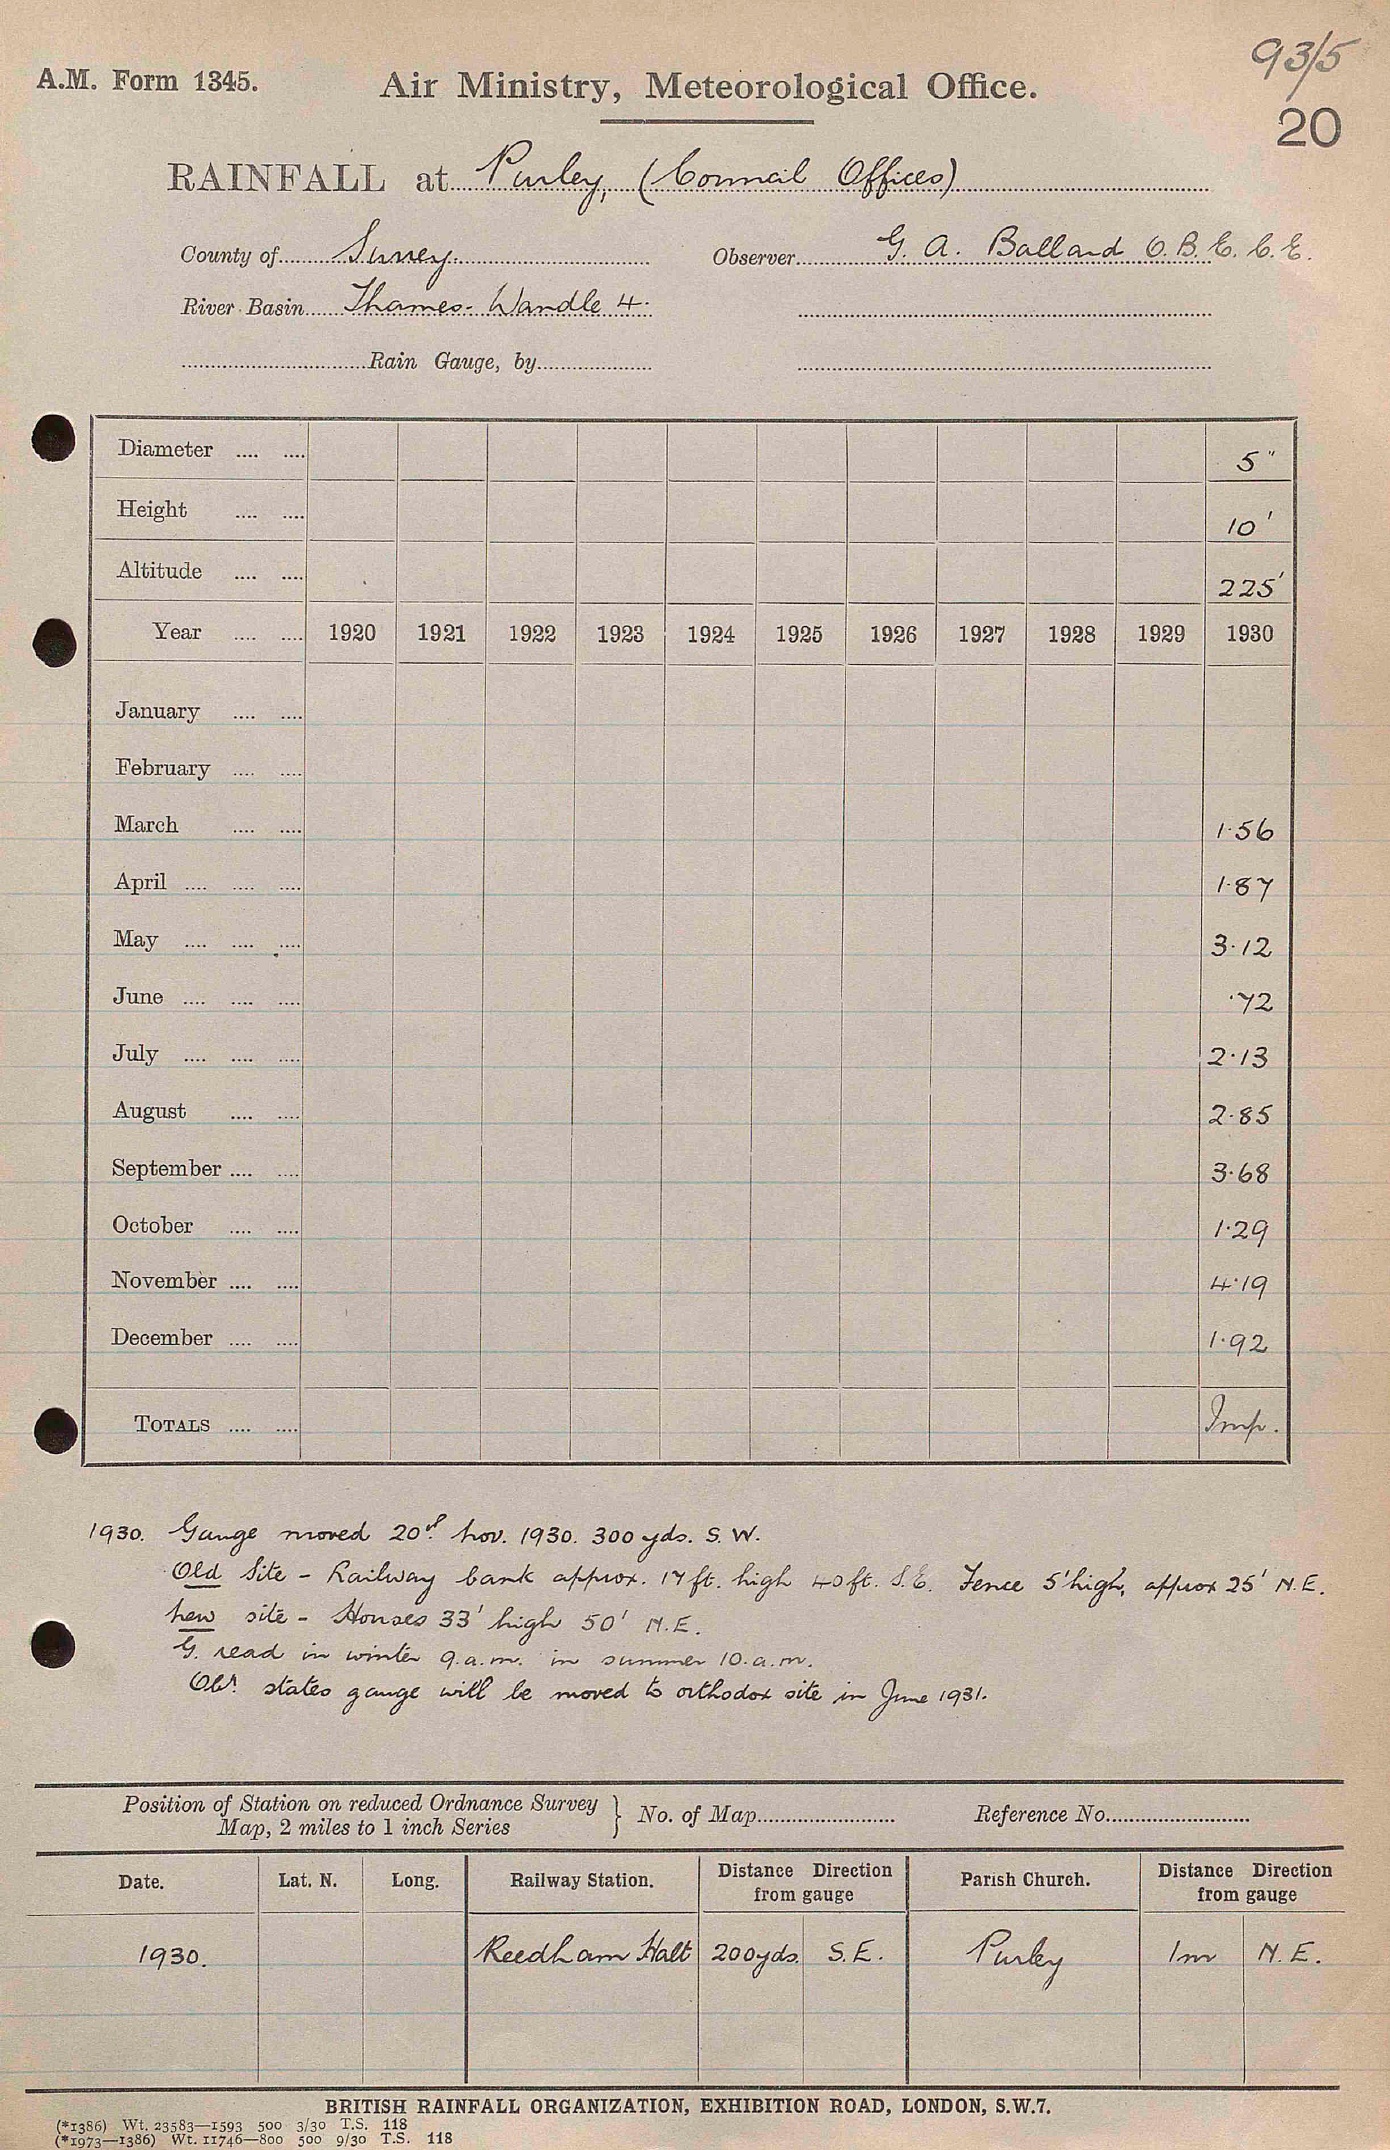 93/5
A.M. Form 1345. Air Ministry, Meteorological Office.
20
RAINFALL at Purley, (Council Offices)
County of Surrey. Observer G. A. Ballard O.B.E. C.E.
River Basin Thames - Wandle 4.
Rain Gauge, by
Diameter .... .... 5"
Height .... .... 10'
Altitude .... .... 225'
Year .... .... 1920 1921 1922 1923 1924 1925 1926 1927 1928 1929 1930
January .... ....
February .... ....
March .... .... 1·56
April .... .... .... 1·87
May .... .... .... 3·12
June .... .... .... ·72
July .... .... .... 2·13
August .... .... 2·85
September .... .... 3·68
October .... .... 1·29
November .... .... 4·19
December .... .... 1·92
TOTALS .... .... Imp.
1930. Gauge moved 20th Nov. 1930. 300 yds. S.W.
Old Site - Railway bank approx. 17 ft. high 40 ft. S.E. Fence 5' high, approx 25' N.E.
New site - Houses 33' high 50' N.E.
G. read in winter 9.a.m. in summer 10.a.m.
Obr. states gauge will be moved to orthodox site in June 1931.
Position of Station on reduced Ordnance Survey
Map, 2 miles to 1 inch Series } No. of Map Reference No.
Date. Lat. N. Long. Railway Station. Distance Direction from gauge Parish Church. Distance Direction from gauge
1930. Reedham Halt 200yds. S.E. Purley 1m N.E.
BRITISH RAINFALL ORGANIZATION, EXHIBITION ROAD, LONDON, S.W.7.
(*1386) Wt. 23583—1593 500 3/30 T.S. 118
(*1973—1386) Wt. 11746—800 500 9/30 T.S. 118